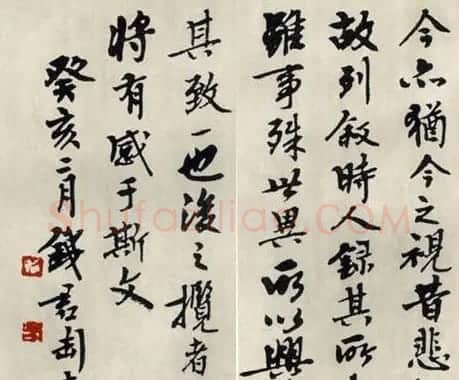 今亦猶今之視昔悲
故列敘時人錄其所
雖事殊世異所以興
其致一也後之攬者
將有感于斯文
癸亥二月錢君匋